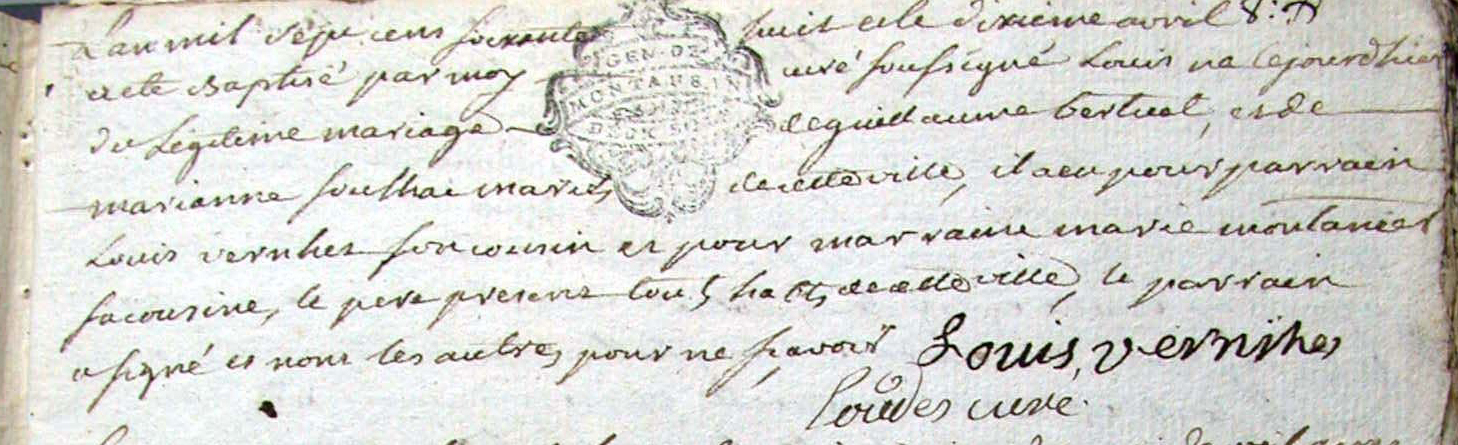 L'an mil sept cens soixante huit et le dixieme avril
a ete Baptisé par moy curé soussigné Louis né lejourdhier
du Légitime mariage de guillaume bertuel, et de
marianne soulhac mariés de cette ville, il a eu pour parrain
Louis vernhet son cousin et pour marraine marie montanier
sa cousine, le pere present tous habts de cette ville, le parrain
a signé et nont les autres pour ne sçavoir Louis, vernihes
curé.
GEN. DE
MONTAUBAN